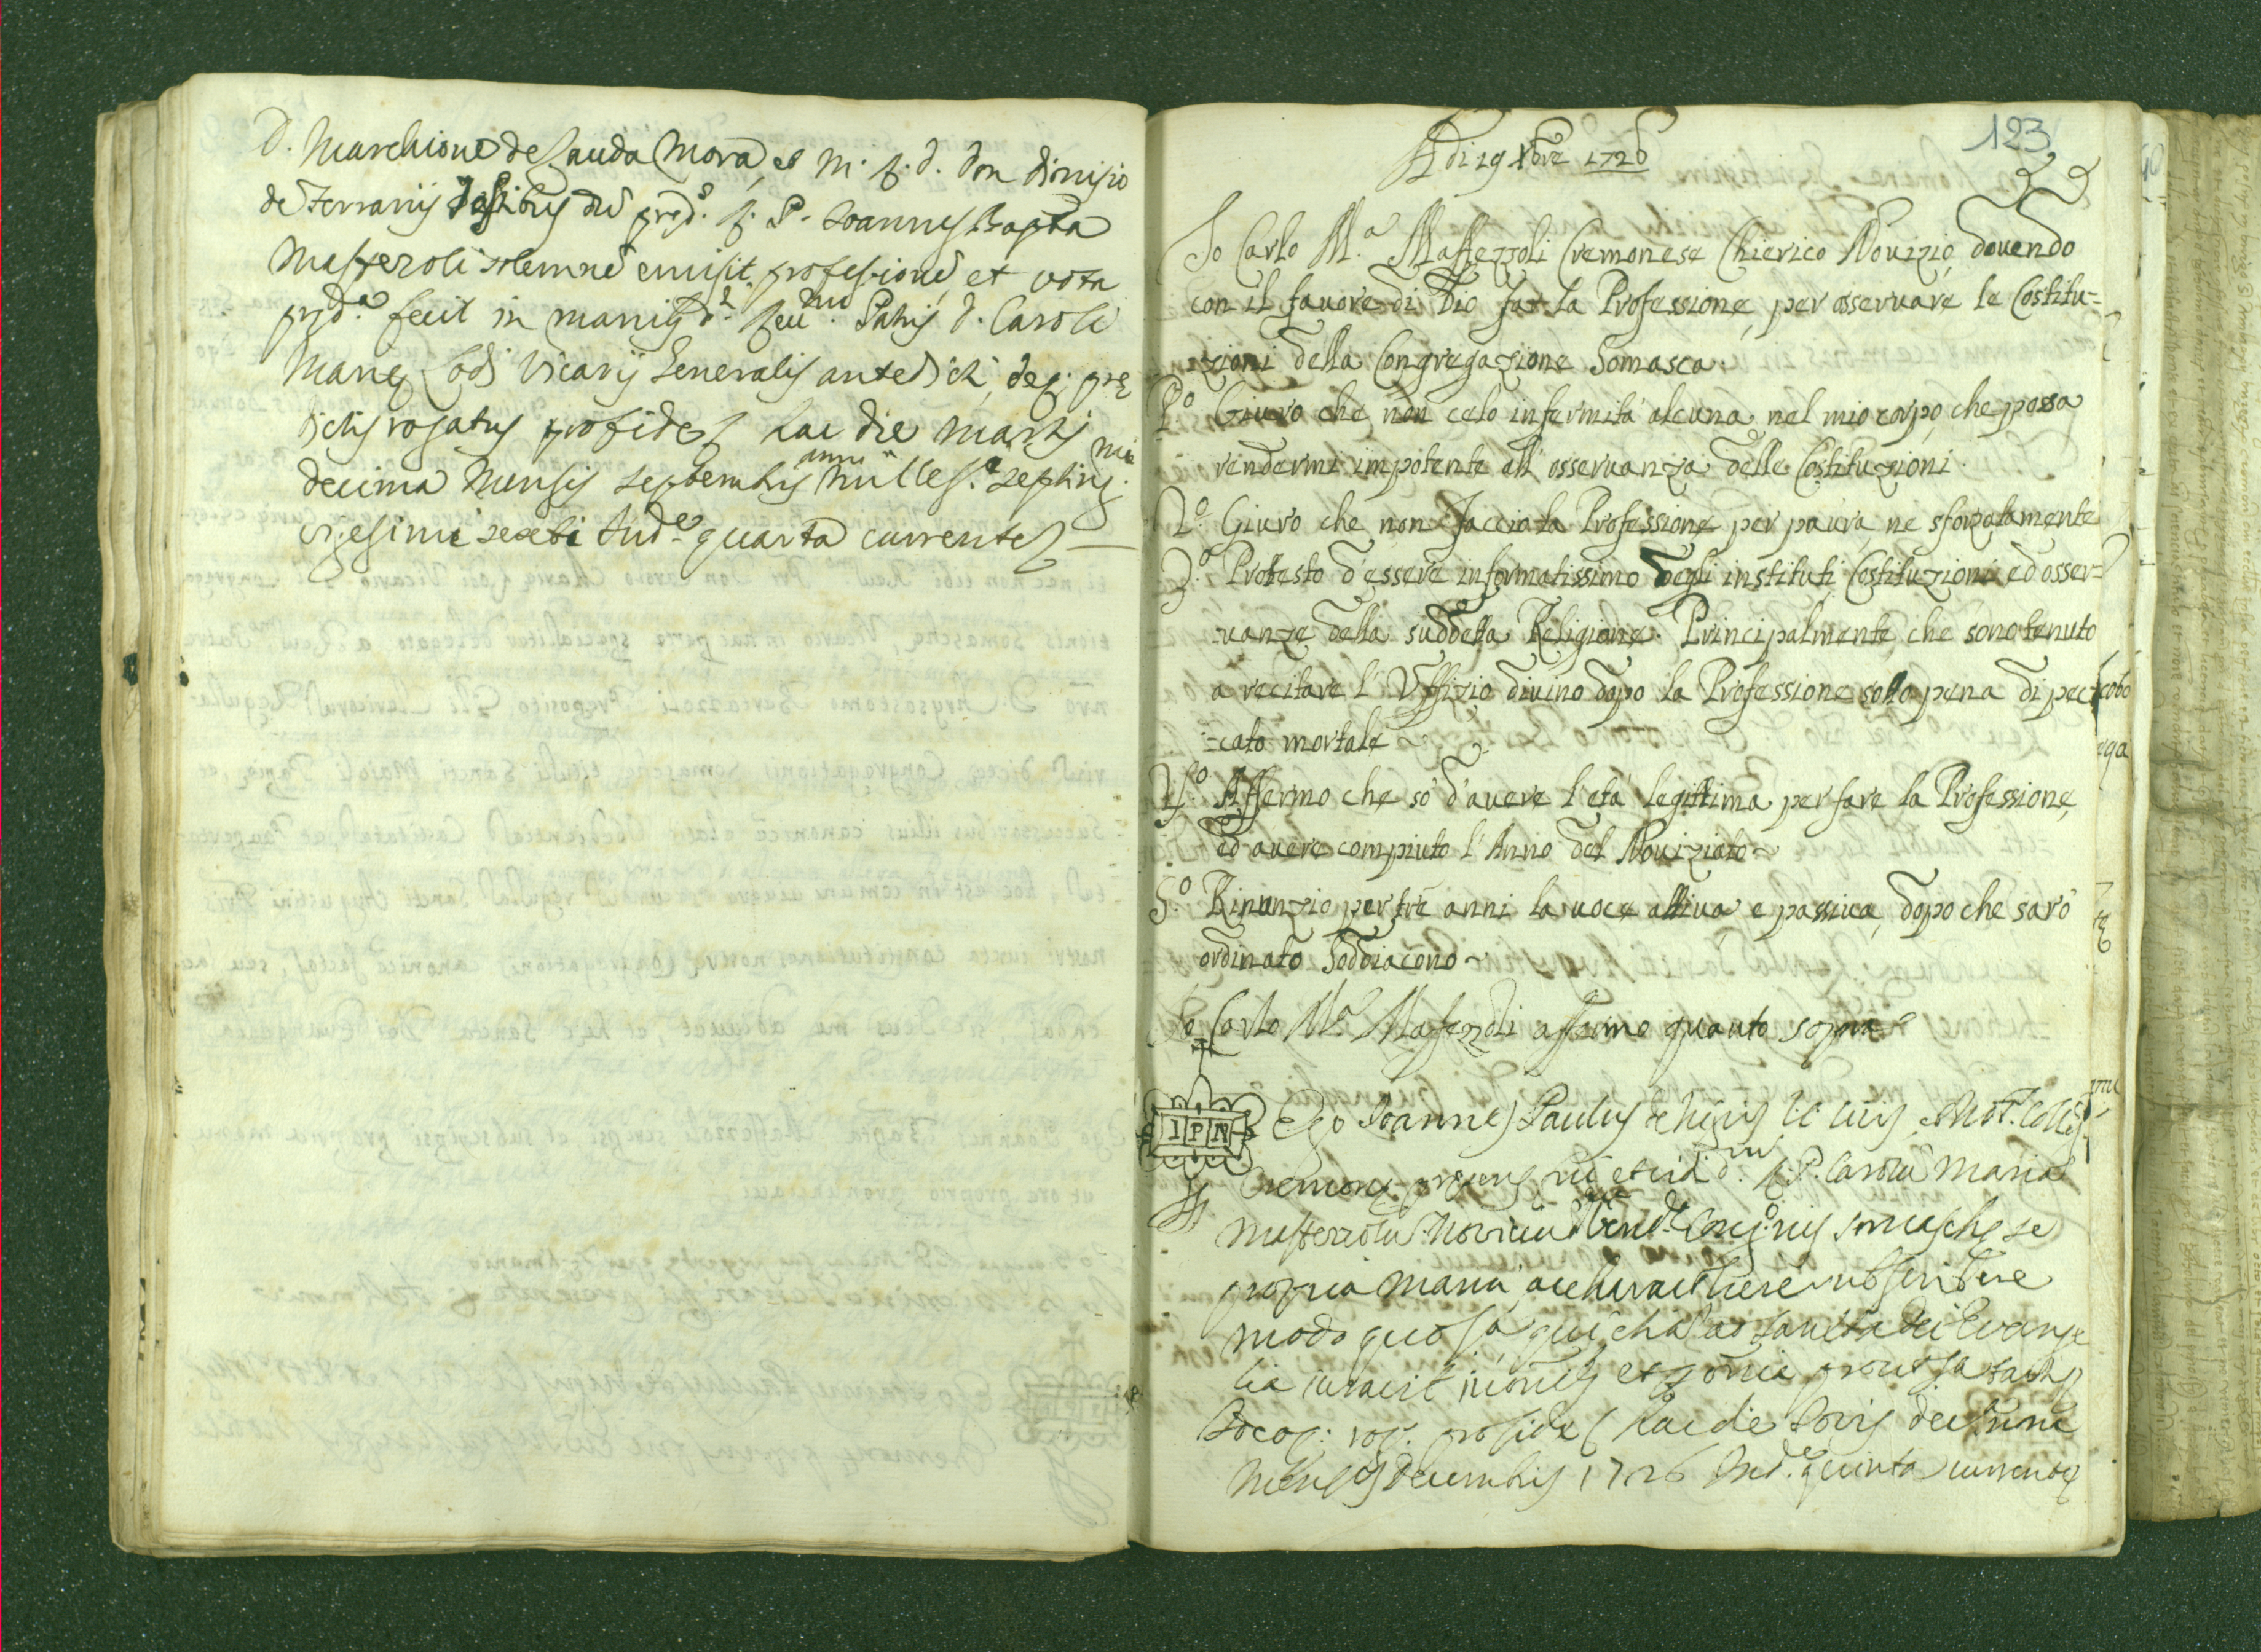 D. Marchione de Lauda Mora, et M. R. D. Don Dionisio
de Ferrariis Testibus dum pred.s R. P. Joannes Bapta
Maffezoli solemne emisit professione, et vota
pred.a fecit in manis d.i Reu.mi Patris D. Caroli
Marie Lodi Vicarij Generalis antedicti, deq; pre
dictis rogatus pro fide hac die Martis
decima Mensis Septembris anni Milles.i Septing.mi
vigesimi sexti Ind.e quarta currente
123
Adi 19 Xbre 1726
Io Carlo M.a Maffezzoli Cremonese Chierico Novizio dovendo
con il favore di Dio far la Professione, per osservare le Costitu=
=zioni della Congregazione Somasca.
P.o Giuro che non celo infermità alcuna nel mio corpo, che possa
rendermi impotente all'osservanza delle Costituzioni.
2.o Giuro che non faccia la Professione per paura, ne sforzatamente
3.o Protesto d'essere informatissimo degli instituti Costituzioni ed osser=
=vanze della suddetta Religione. Principalmente che sono tenuto
a recitare l'Uffizio divino dopo la Professione sotto pena di pec
=cato mortale
4.o Affermo che so d'avere l'età legittima per fare la Professione,
ed avere compiuto l'Anno del Noviziato
5.o Rinunzio per tre anni la voce attiva e passiva, dopo che sarò
ordinato Soddiacono
Io Carlo M.a Mafezzoli affermo quanto sopra
IPN
Ego Joannes Paulus de Nigris I. C. Civis et Not. Colleg.
Cremone presens fui et vidi d.um R. P. Carolu Maria
Maffezzolu Noviciu Ven.de Cong.nis Somasche se
propria manu, ac charactere subscribere
modo quo s.a, qui etia ad sancta Dei Evange
lia iuravit in omnib et p omnia prout s.a tactis
rog. pro fide hac die Jovis decima nona
Mensis Decembris 1726 Ind.e quinta currente